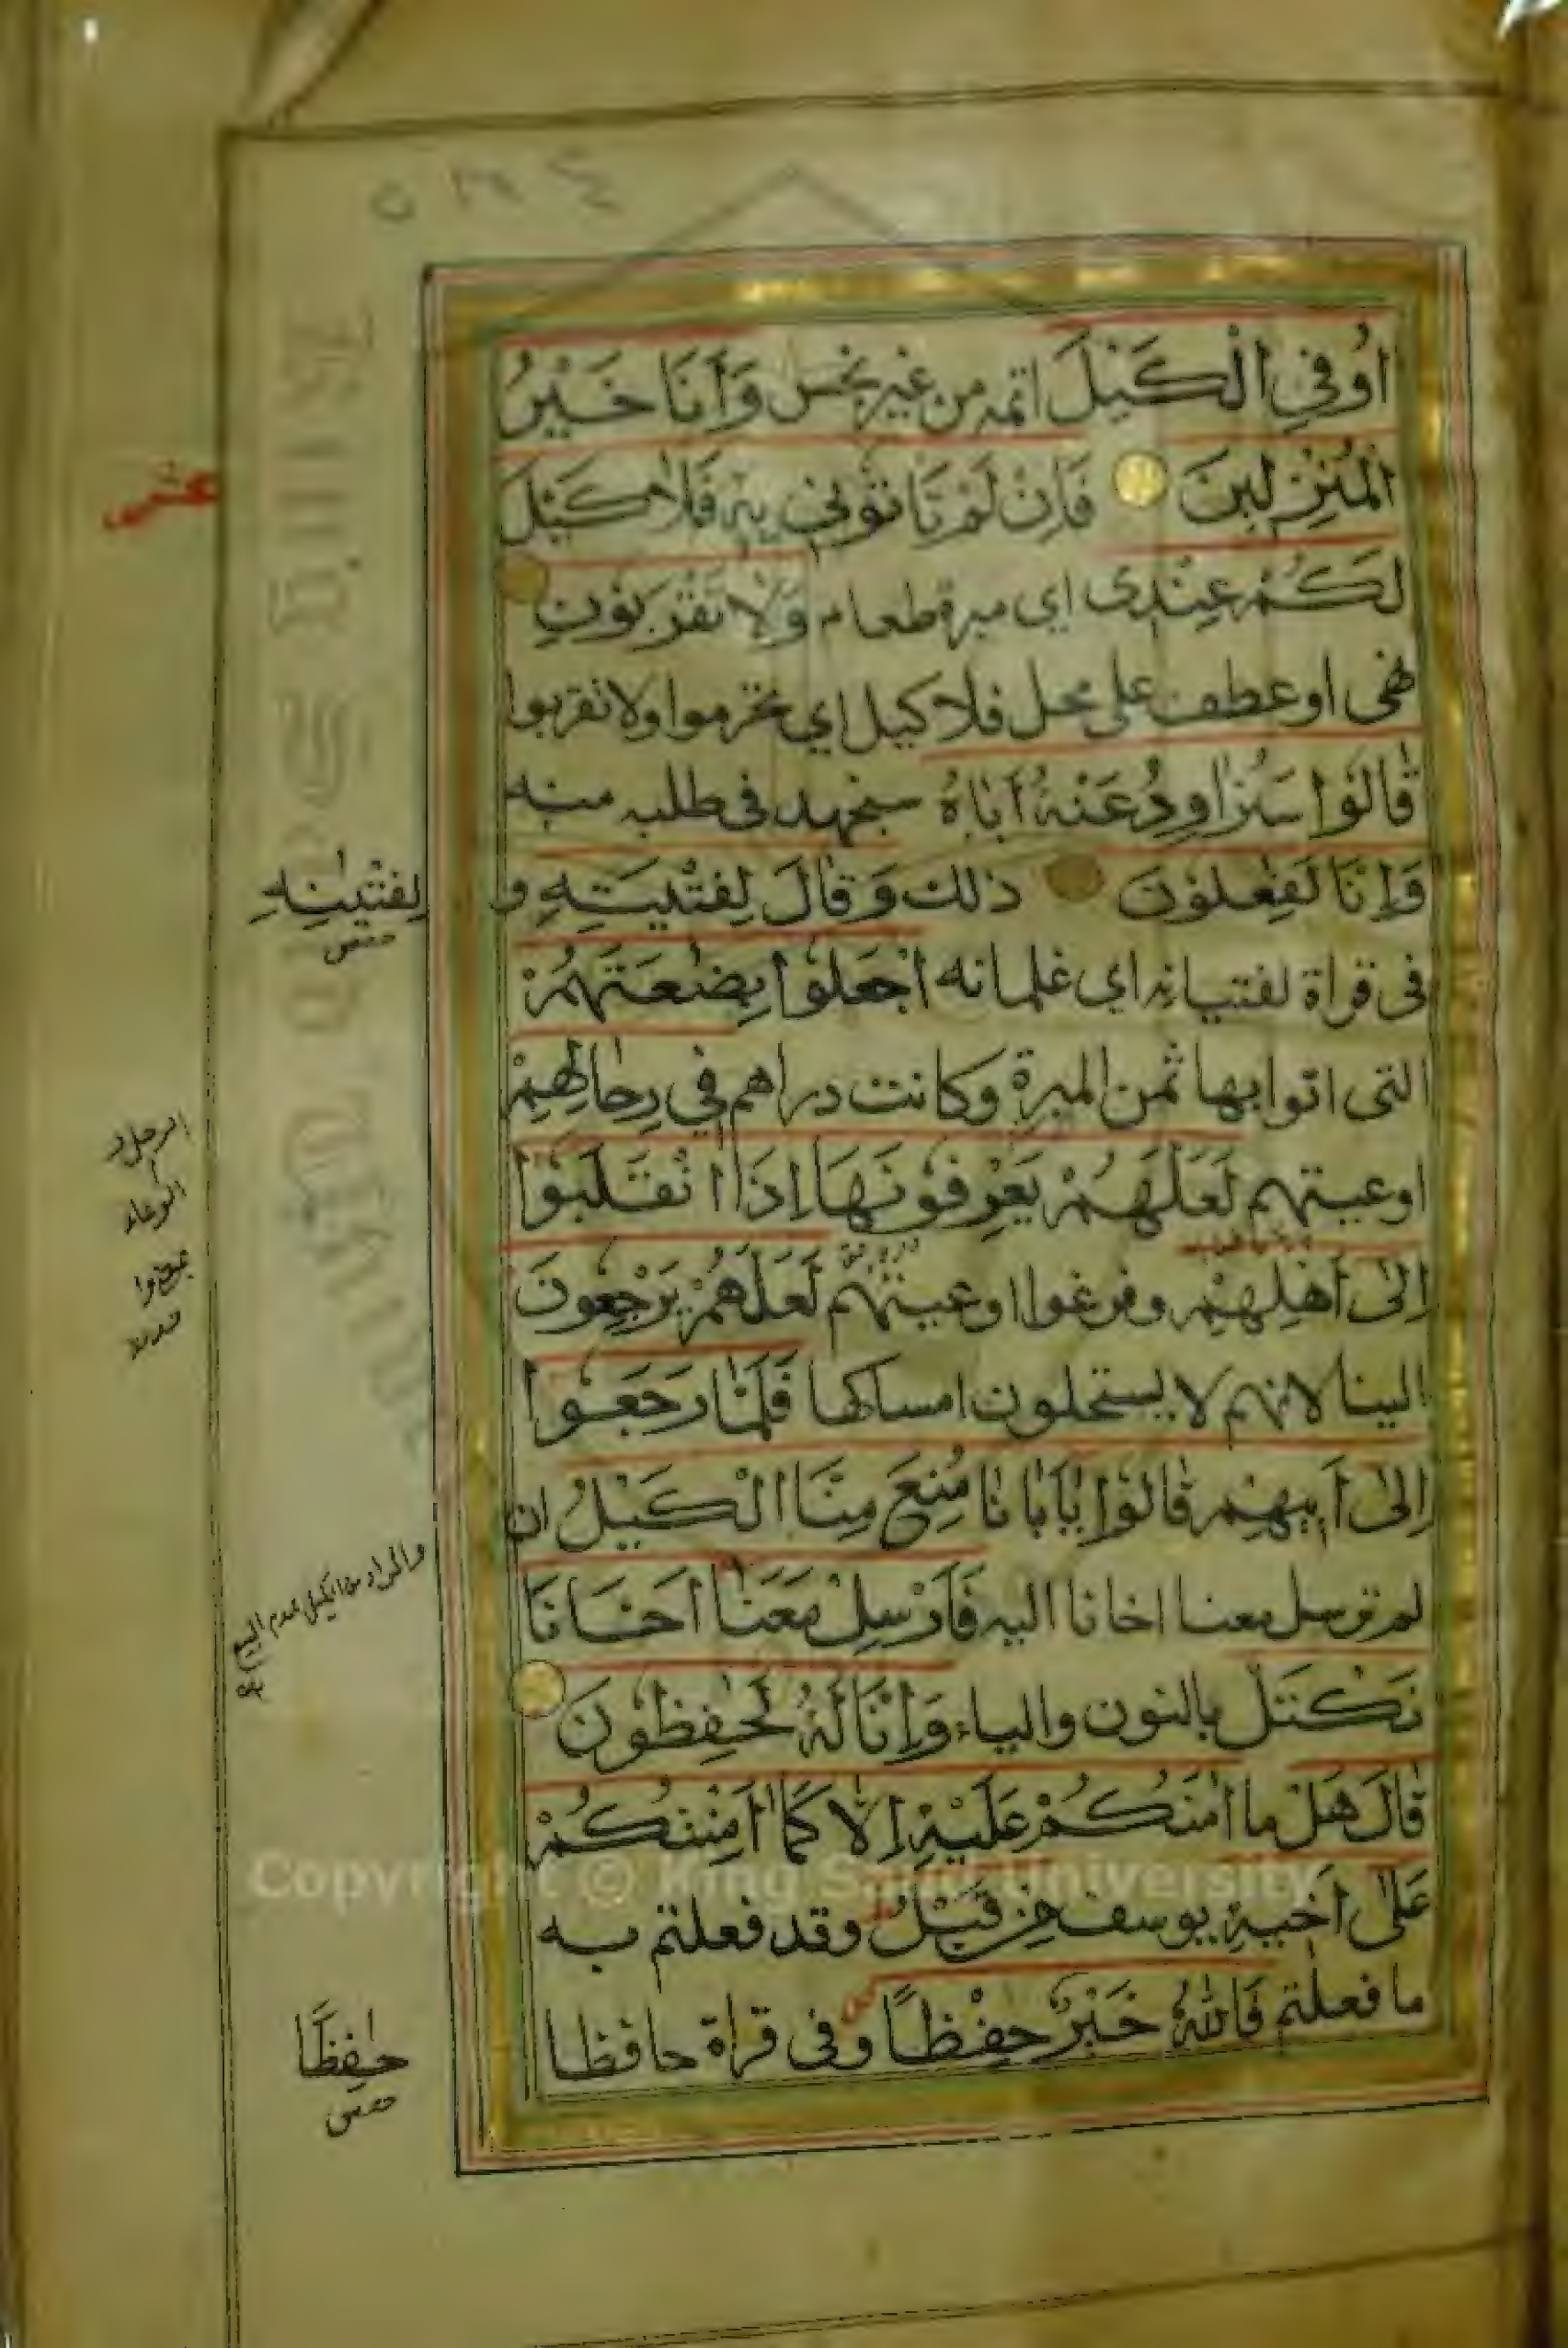 اُوفِي الْكَيْلَ اتمه من غير بخس وَاَنَا خَيْرُ
الْمُنْزِلِينَ فَاِنْ لَمْ تَاْتُونِي بِهِ فَلَا كَيْلَ
لَكُمْ عِنْدِي اي ميرة طعام وَلَا تَقْرَبُونِ
نهى او عطف على محل فلا كيل اي تحرموا ولا تقربوا
قَالُوا سَنُرَاوِدُ عَنْهُ اَبَاهُ سنجهد فى طلبه منه
وَاِنَّا لَفٰعِلُونَ ذلك وَقَالَ لِفِتْيَتِهِ و
فى قراة لفتيانه اي غلمانه اجْعَلُوا بِضٰعَتَهُمْ
التى اتوا بها ثمن الميرة وكانت دراهم فِي رِحَالِهِمْ
اوعيتهم لَعَلَّهُمْ يَعْرِفُونَهَا اِذَا انْقَلَبُوا
اِلٰى اَهْلِهِمْ وفرغوا اوعيتهم لَعَلَّهُمْ يَرْجِعُونَ
الينا لانهم لا يستحلون امساكها فَلَمَّا رَجَعُوا
اِلٰى اَبِيهِمْ قَالُوا يٰاَبَانَا مُنِعَ مِنَّا الْكَيْلُ ان
لم ترسل معنا اخانا اليه فَاَرْسِلْ مَعَنَا اَخَانَا
نَكْتَلْ بالنون والياء وَاِنَّا لَهُ لَحٰفِظُونَ
قَالَ هَلْ ما اٰمَنُكُمْ عَلَيْهِ اِلَّا كَمَا اَمِنْتُكُمْ
عَلٰى اَخِيهِ يوسف مِنْ قَبْلُ وقد فعلتم به
ما فعلتم فَاللّٰهُ خَيْرٌ حِفْظًا وفى قراة حافظا
عشر
لِفِتْيٰنِهِ
حفص
الرحل
الوعاء
والمراد من الكيل عدم البيع
حٰفِظًا
حفص
Copyright © King Saud University